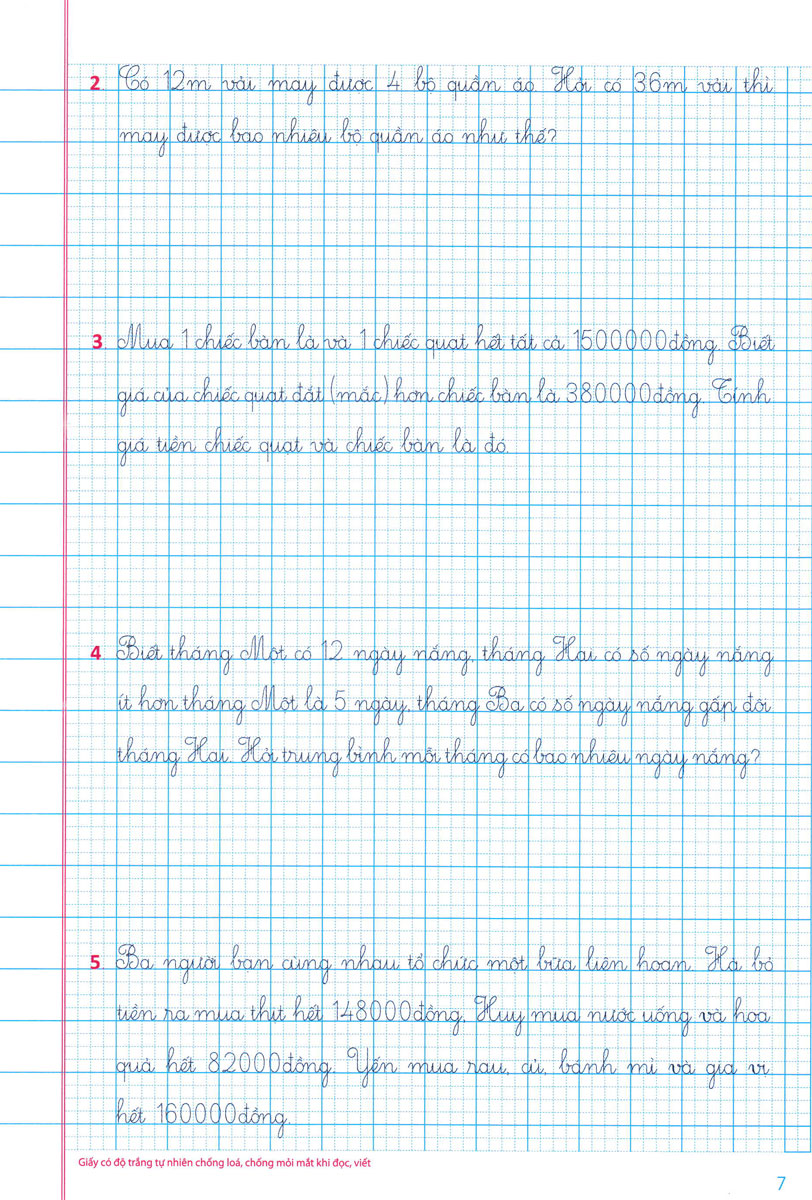 2. Có 12m vải may được 4 bộ quần áo. Hỏi có 36m vải thì
may được bao nhiêu bộ quần áo như thế?
3. Mua 1 chiếc bàn là và 1 chiếc quạt hết tất cả 1500000 đồng. Biết
giá của chiếc quạt đắt (mắc) hơn chiếc bàn là 380000 đồng. Tính
giá tiền chiếc quạt và chiếc bàn là đó.
4. Biết tháng Một có 12 ngày nắng, tháng Hai có số ngày nắng
ít hơn tháng Một là 5 ngày, tháng Ba có số ngày nắng gấp đôi
tháng Hai. Hỏi trung bình mỗi tháng có bao nhiêu ngày nắng?
5. Ba người bạn cùng nhau tổ chức một bữa liên hoan. Hà bỏ
tiền ra mua thịt hết 148000 đồng, Huy mua nước uống và hoa
quả hết 82000 đồng. Yến mua rau, củ, bánh mì và gia vị
hết 160000 đồng.
Giấy có độ trắng tự nhiên chống loá, chống mỏi mắt khi đọc, viết
7